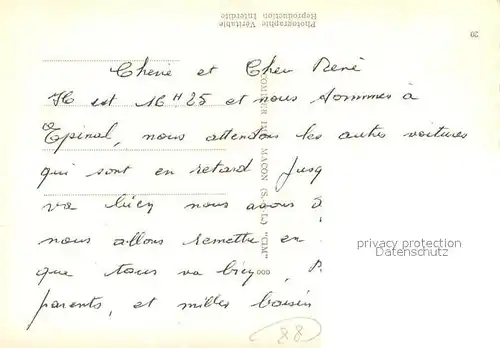 Photographie Véritable
Reproduction Interdite
20
Cherie et Cher René
Il est 16 H 25 et nous sommes à
Epinal, nous attendons les autres voitures
qui sont en retard Jusq
va bien nous avons
nous allons remettre en
que tous va bien, P.
parents, et milles baisers
MACON (S.-et-L.) "CIM"
privacy protection
DABEIC
88